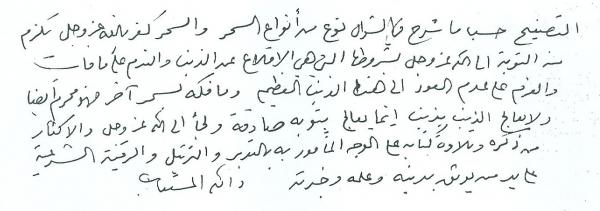 التصفيح حسب ما شرح في السؤال نوع من أنواع السحر والسحر كفر بالله عز وجل يلزم
منه التوبة الى الله عز وجل بشروطها التي هي الاقلاع عن الذنب والندم على ما فات
والعزم على عدم العود الى هذا الذنب العظيم وما فكه بسحر آخر فهو محرم أيضا
ولا يعالج الذنب بذنب إنما يعالج بتوبة صادقة ولجأ الى الله عز وجل والاكثار
من ذكره وتلاوة كتابه على الوجه المأمور به بالتدبر والترتيل والرقية الشرعية
على يد من يوثق بدينه وعلمه وخبرته والله المستعان